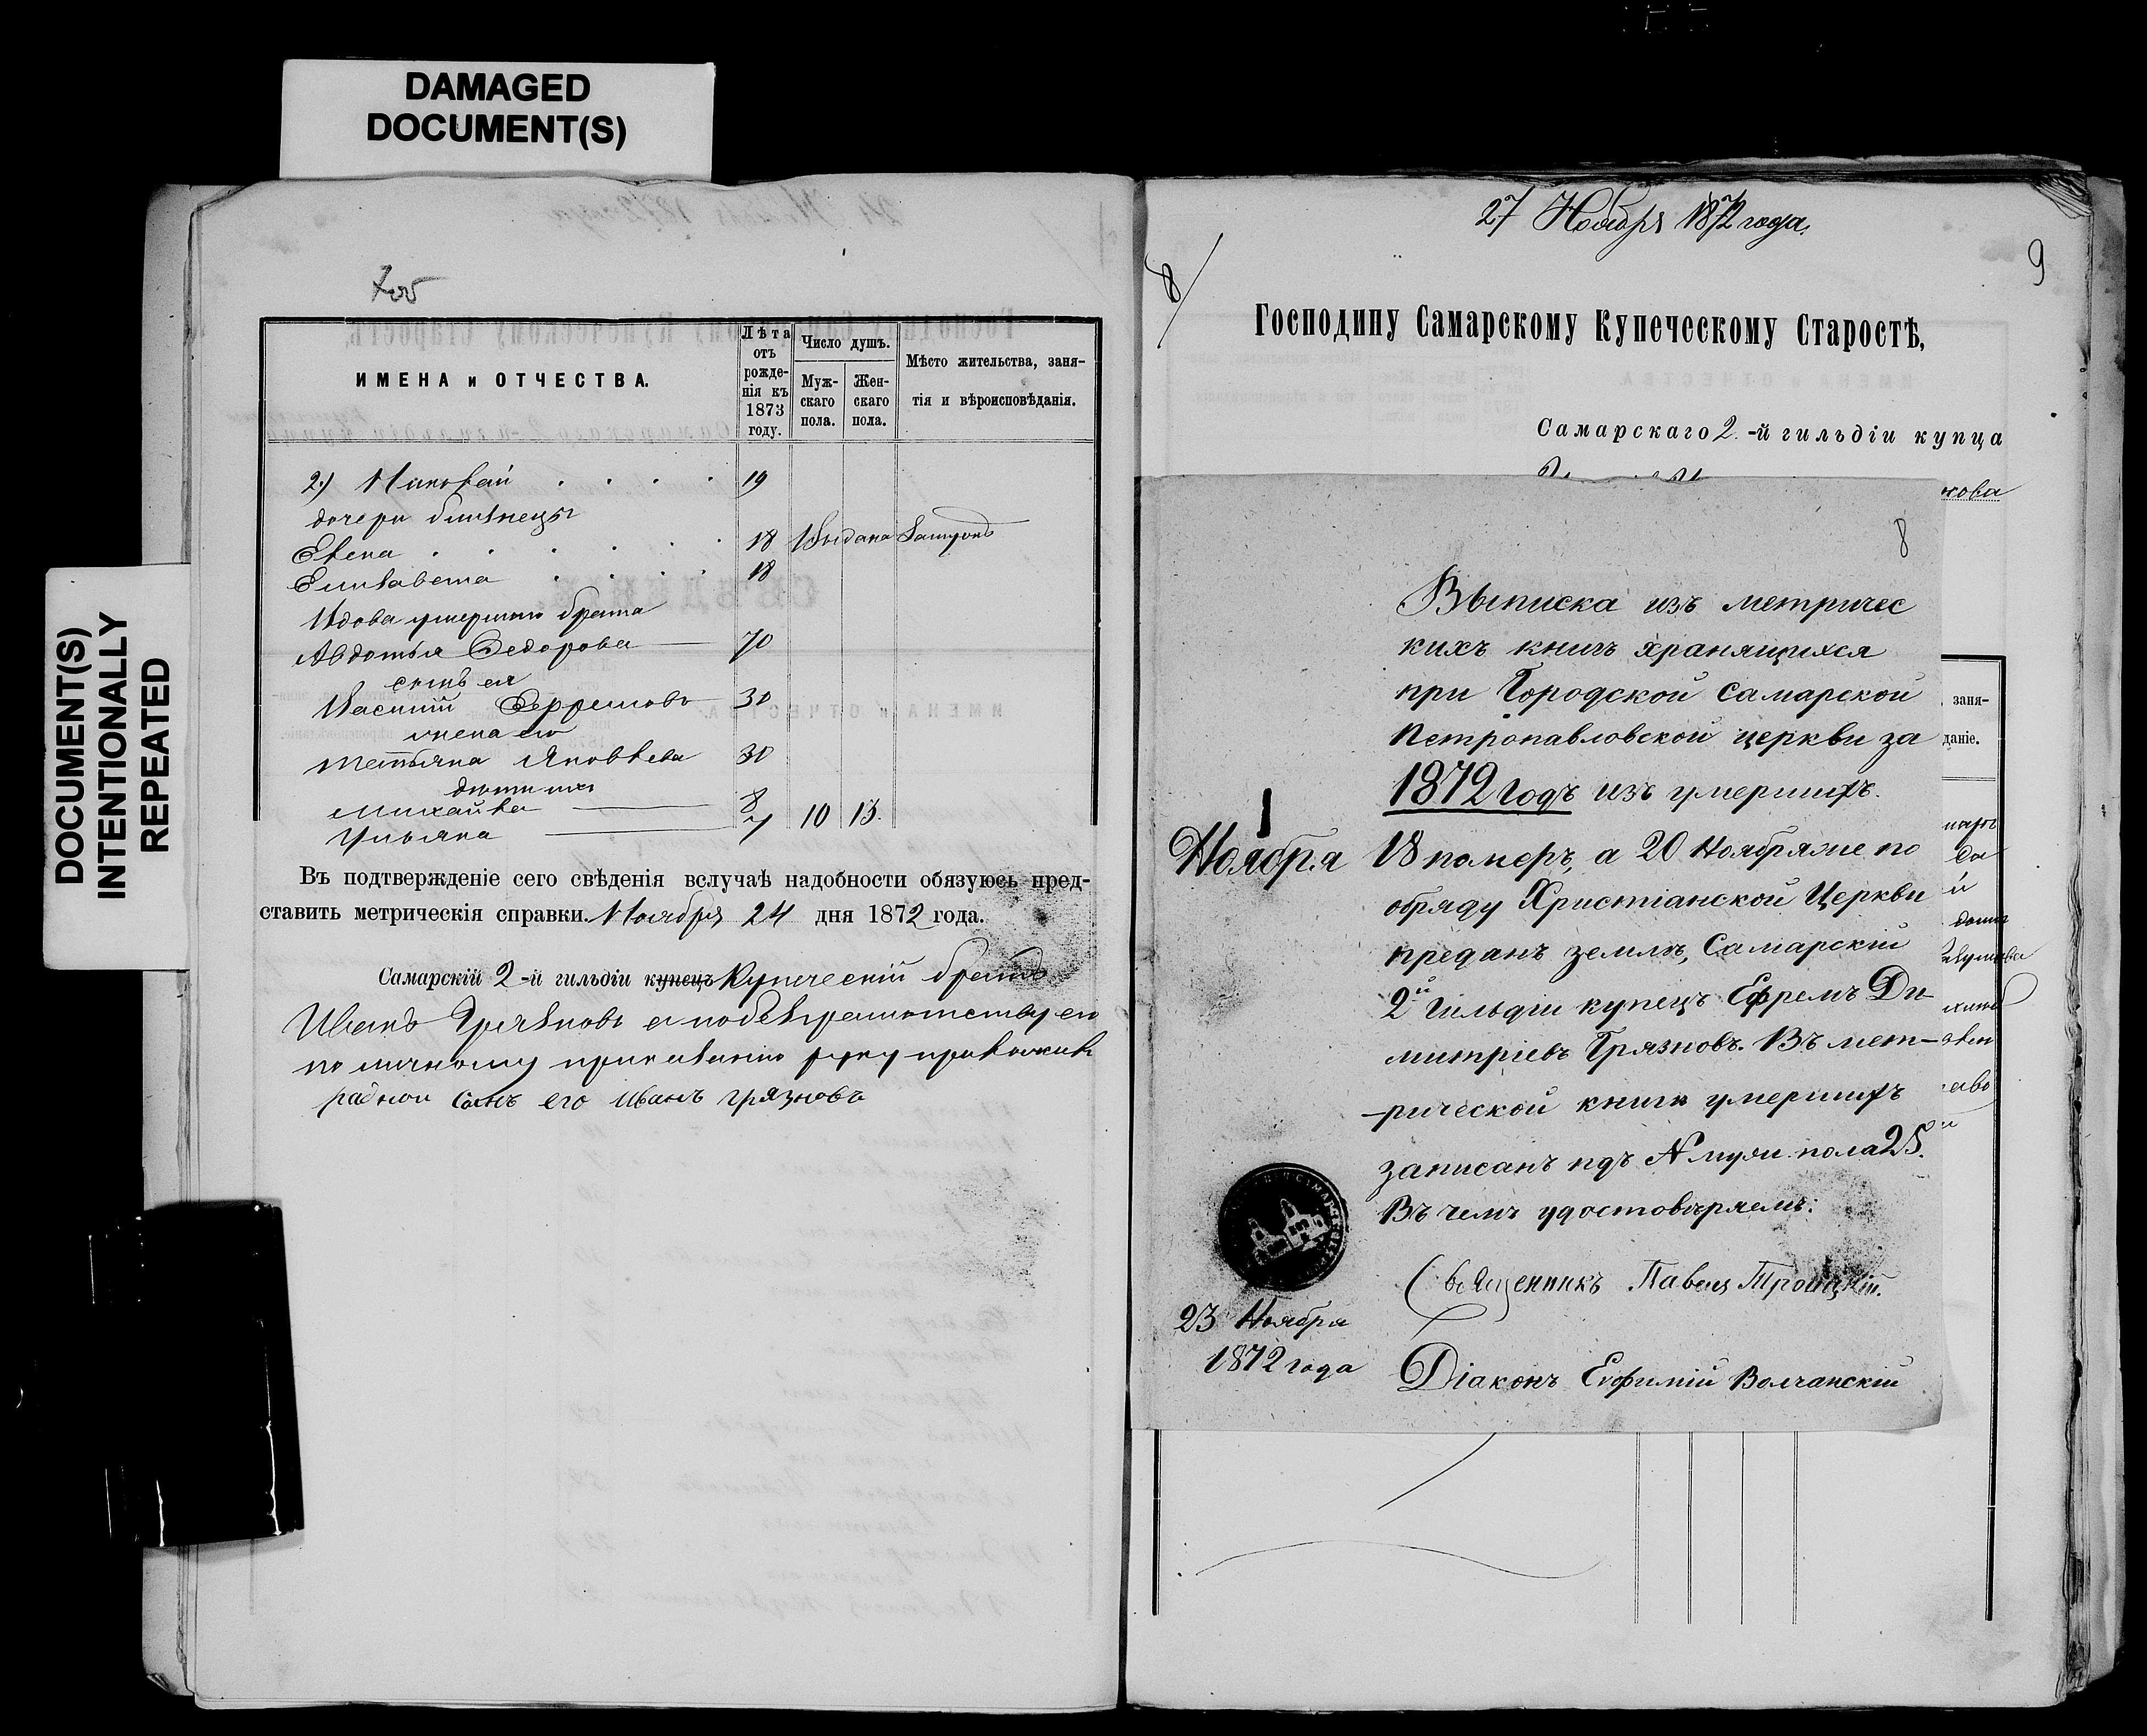 DAMAGED
DOCUMENT(S)
DOCUMENT(S)
INTENTIONALLY
REPEATED
7 об
ИМЕНА и ОТЧЕСТВА.
Лѣта отъ рожденія къ 1873 году.
Число душъ.
Мужскаго пола.
Женскаго пола.
Мѣсто жительства, занятія и вѣроисповѣданія.
2) Николай 19
дочери близнецы
Елена 18 Выдана Замужъ
Елизавета 18
Вдова умершаго брата
Авдотья Федорова 70
сынъ ея
Василій Ефремовъ 30
жена его
Татьяна Яковлева 30
дѣти ихъ
Михайла 8
Ульяна 7 10 13.
Въ подтвержденіе сего свѣденія вслучаѣ надобности обязуюсь пред-
ставить метрическія справки. Ноября 24 дня 1872 года.
Самарскій 2-й гильдіи купецъ Купеческій братъ
Иванъ Грязновъ а по безграмотству его
по личному приказанію руку приложилъ
родной сынъ его Иванъ Грязновъ
27 Ноября 1872 года.
8
9
Господину Самарскому Купеческому Старостѣ,
Самарскаго 2-й гильдіи купца
кова
8
Выписка изъ метричес
кихъ книгъ хранящихся
при Городской Самарской
Петропавловской церкви за
1872 годъ изъ умершихъ.
Ноября 18 померъ, а 20 Ноября же по
обряду Христіанской Церкви
преданъ землѣ, Самарскій
2й гильдіи купецъ Ефремъ Ди-
митріевъ Грязновъ. Въ мет-
рической книги умершихъ
записанъ подъ № муж. пола 25.
Въ чемъ удостовѣряемъ:
Священникъ Павелъ Троицкій.
23 Ноября
1872 года
Діаконъ Евфимій Волчанскій
заня-
даніе.